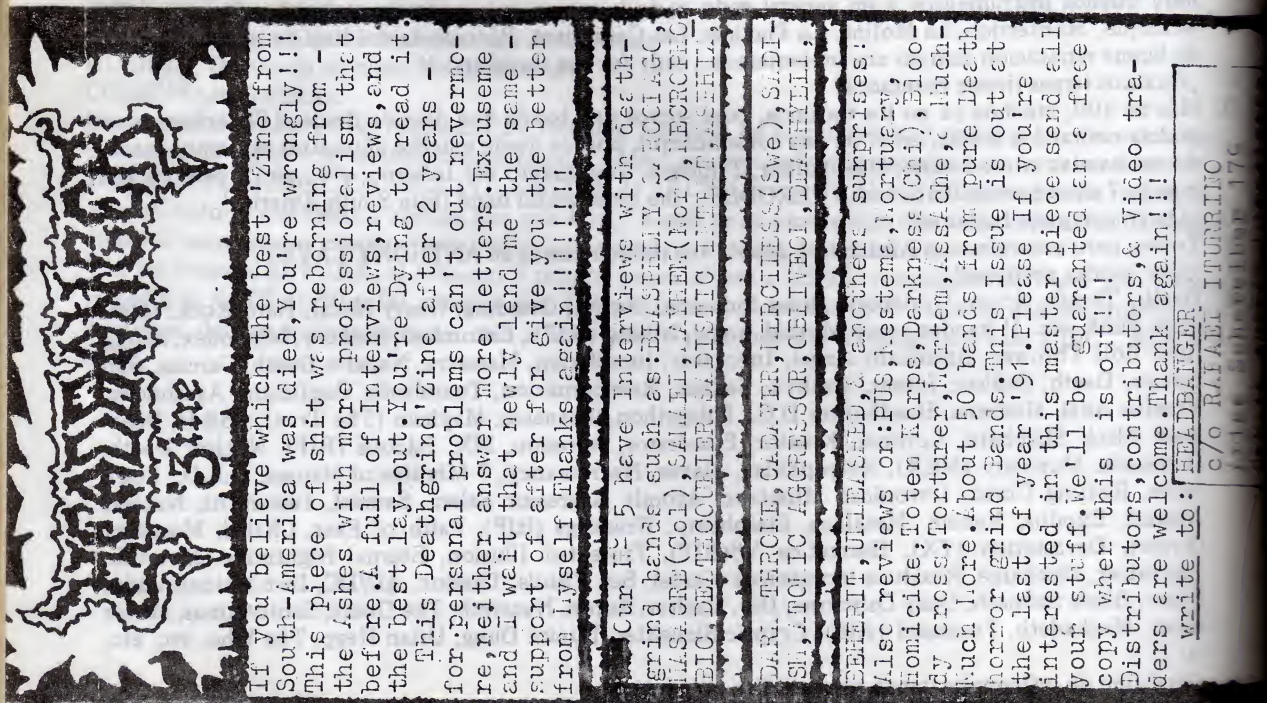 HEADBANGER
'Zine
If you believe which the best 'Zine from
South-America was died,You're wrongly!!!
This piece of shit was reborning from -
the Ashes with more professionalism that
before.A full of Interviews,reviews,and
the best lay-out.You're Dying to read it.
This Deathgrind'Zine after 2 years -
for personal problems can't out nevermo-
re,neither answer more letters.Excuseme
and I wait that newly lend me the same -
support of after for give you the better
from Myself.Thanks again!!!!!!!!!
Our N-5 have Interviews with dea th-
grind bands such as:BLASPHEMY,SARCOFAGO,
MASACRE(Col),SAMAEL,CATHEM(Nor),NECROPHO
BIC,DEATHCOURIER,SADISTIC INTENT,MASTIPHAL,
DARK THRONE,CADAVER,MERCILESS(Swe),SADI-
SM,ATOMIC AGGRESSOR,OBLIVEON,DEATHYELL,
BEHERIT,UNLEASHED,& anothers surprises:
Also reviews on:PUS,Kestema,Mortuary,
Homicide,Toten Korps,Darkness(Chi),Bloo-
dy cross,Torturer,Mortem,AssAche,& Much-
Much More.About 50 bands from pure Death
horror grind Bands.This Issue is out at
the last of year '91.Please If you're -
interested in this master piece send all
your stuff.We'll be guaranted an a free
copy when this is out!!!
Distributors,contributors,& Video tra-
ders are welcome.Thank again!!!
write to: HEADBANGER
c/o RAFAEL ITURRINO